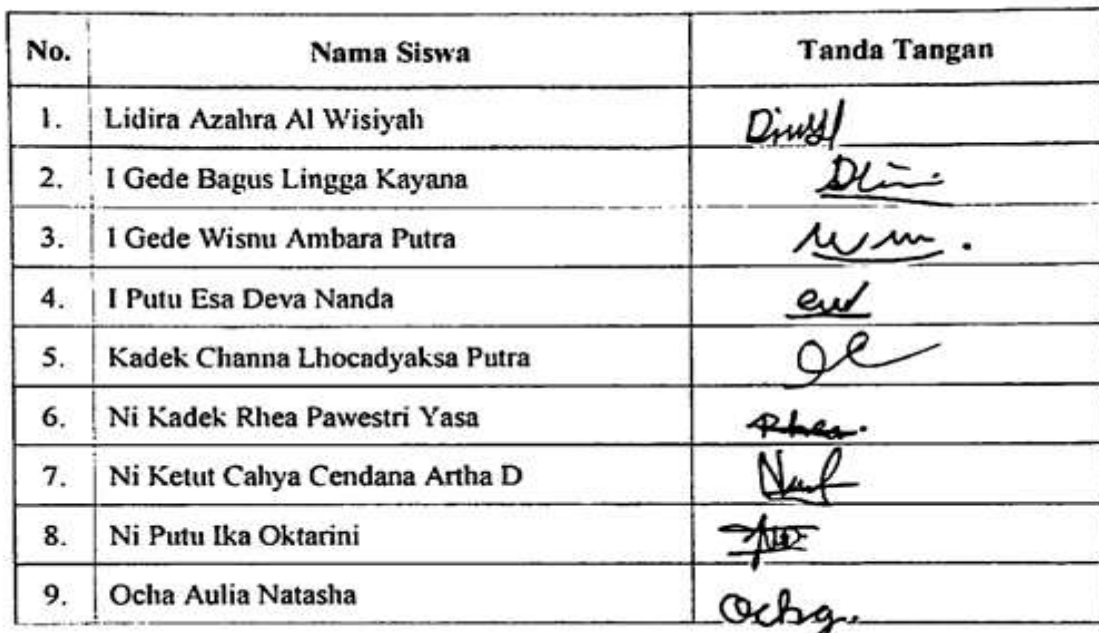 No. Nama Siswa Tanda Tangan
1. Lidira Azahra Al Wisiyah
2. I Gede Bagus Lingga Kayana
3. I Gede Wisnu Ambara Putra
4. I Putu Esa Deva Nanda
5. Kadek Channa Lhocadyaksa Putra
6. Ni Kadek Rhea Pawestri Yasa Rhea.
7. Ni Ketut Cahya Cendana Artha D
8. Ni Putu Ika Oktarini
9. Ocha Aulia Natasha Ocha.